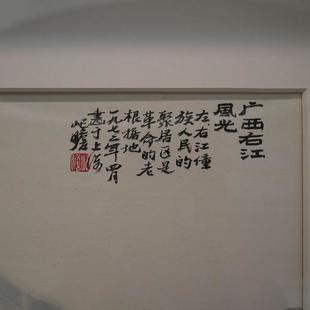 广西右江
風光
左右江僮
族人民的
聚居区是
革命的老
根据地
一九七二年四月
畫于上海
屺瞻